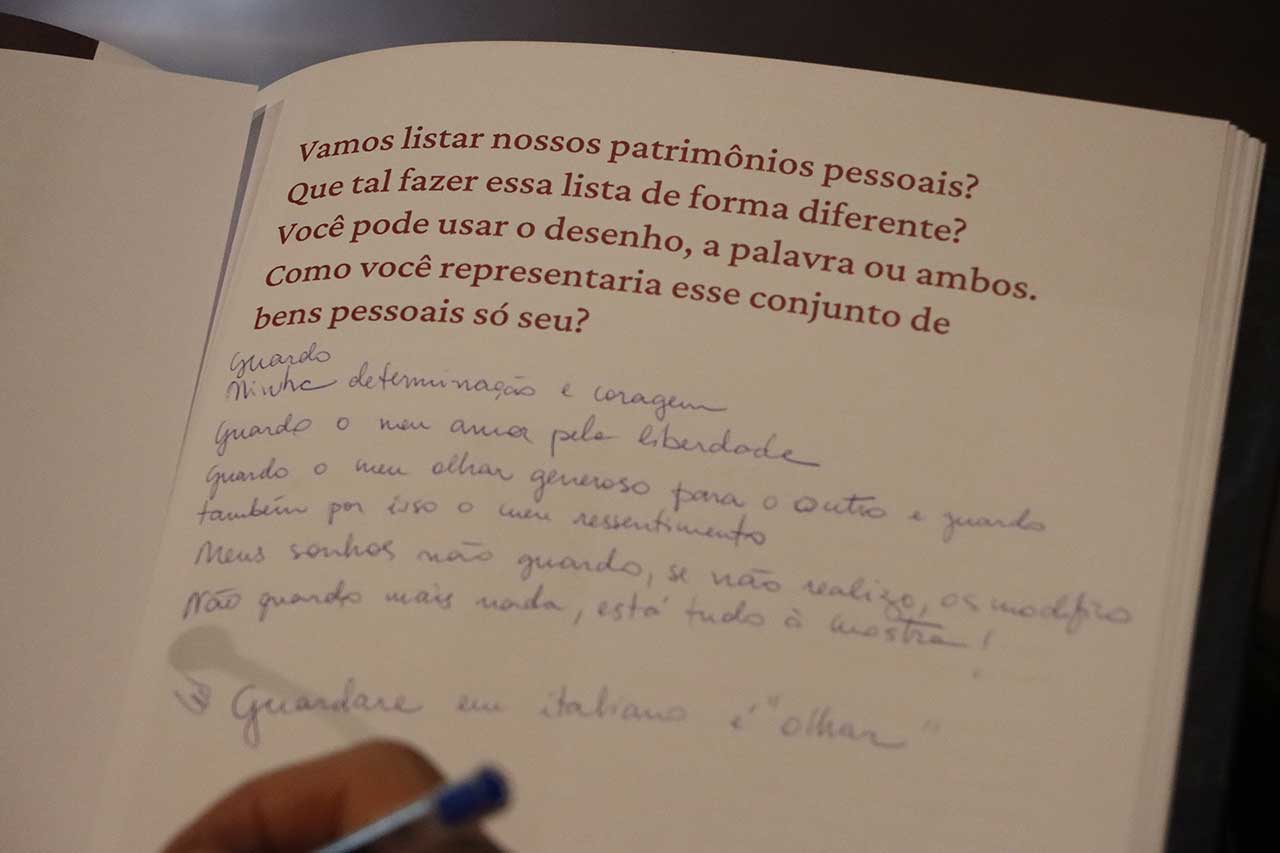 Vamos listar nossos patrimônios pessoais?
Que tal fazer essa lista de forma diferente?
Você pode usar o desenho, a palavra ou ambos.
Como você representaria esse conjunto de
bens pessoais só seu?
Guardo
Minha determinação e coragem
Guardo o meu amor pela liberdade
Guardo o meu olhar generoso para o outro e guardo
também por isso o meu ressentimento
Meus sonhos não guardo, se não realizo, os modifico
Não guardo mais nada, está tudo à mostra!
Guardare em italiano é "olhar"